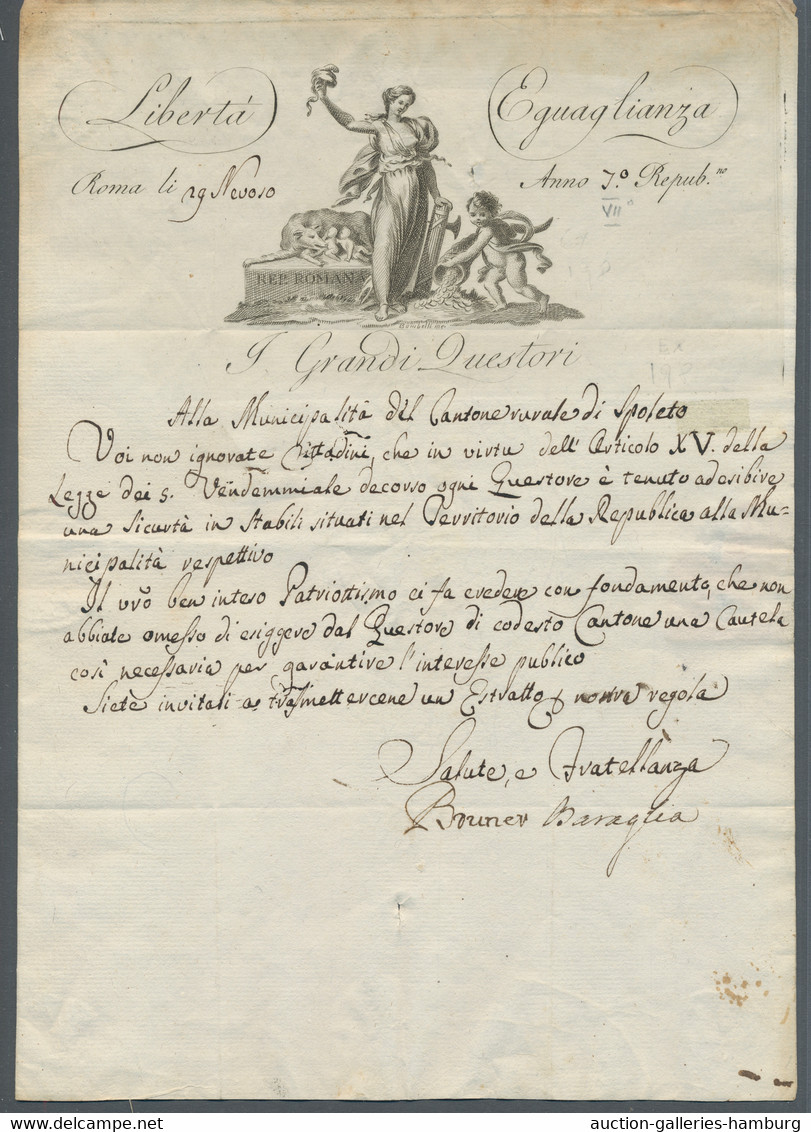 Libertà Eguaglianza
Roma li 29 Nevoso Anno 7.º Repub.no
VII°
REP. ROMANA
I Grandi Questori
EX
Alla Municipalità del Cantone rurale di Spoleto
Voi non ignorate Cittadini, che in virtu dell' Articolo XV. della
Legge dei 5. Vendemmiale decorso ogni Questore è tenuto ad esibire
una Sicurtà in Stabili situati nel Territorio della Republica alla Mu=
nicipalità respettivo
Il vrõ ben inteso Patriottismo ci fa credere con fondamento, che non
abbiate omesso di esiggere dal Questore di codesto Cantone una Cautela
così necessaria per garantire l'interesse publico
Siete invitati a trasmettercene un Estratto nostra regola
Salute, e Fratellanza
Bruner Baraglia
auction-galleries-hamburg